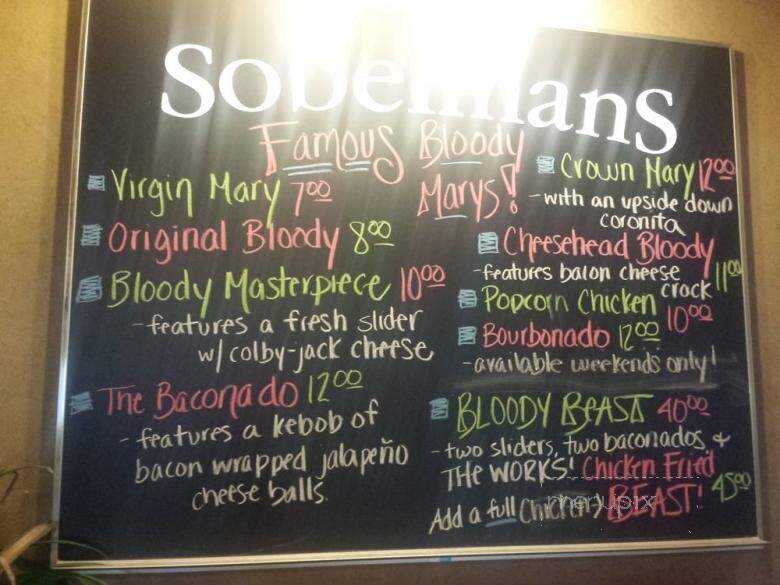 Sobelmans
Famous Bloody
Marys!
Virgin Mary 700
Original Bloody 800
Bloody Masterpiece 1000
-features a fresh slider
w/ colby-jack cheese
The Baconado 1200
-features a kebob of
bacon wrapped jalapeño
cheese balls.
Crown Mary 1200
-with an upside down
coronita
Cheesehead Bloody
-features bacon cheese 1100
crack
Popcorn Chicken 1000
Bourbonado 1200
-available weekends only!
BLOODY BEAST 4000
-two sliders, two baconados &
THE WORKS! Chicken Fried
Add a full Chicken BEAST! 4500
menupix